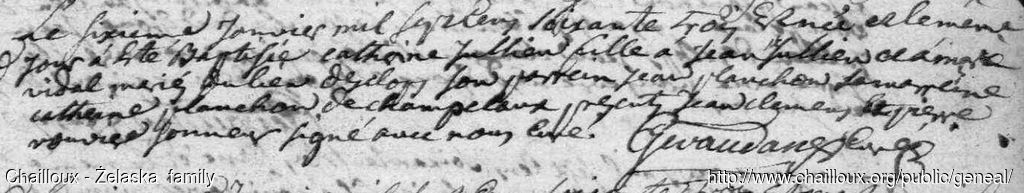 Le sixieme Janvier mil sept cens soixante trois Est née et le meme
jour a été Baptisée catherine Jullien fille a Jean Jullien et a marie
vidal mariés du lieu son parrein jean planchon sa marreine
catherine planchon de champelaux presents Jean clemens et pierre
signé avec nous Curé.
Chailloux - Żelaska family
http://www.chailloux.org/public/geneal/